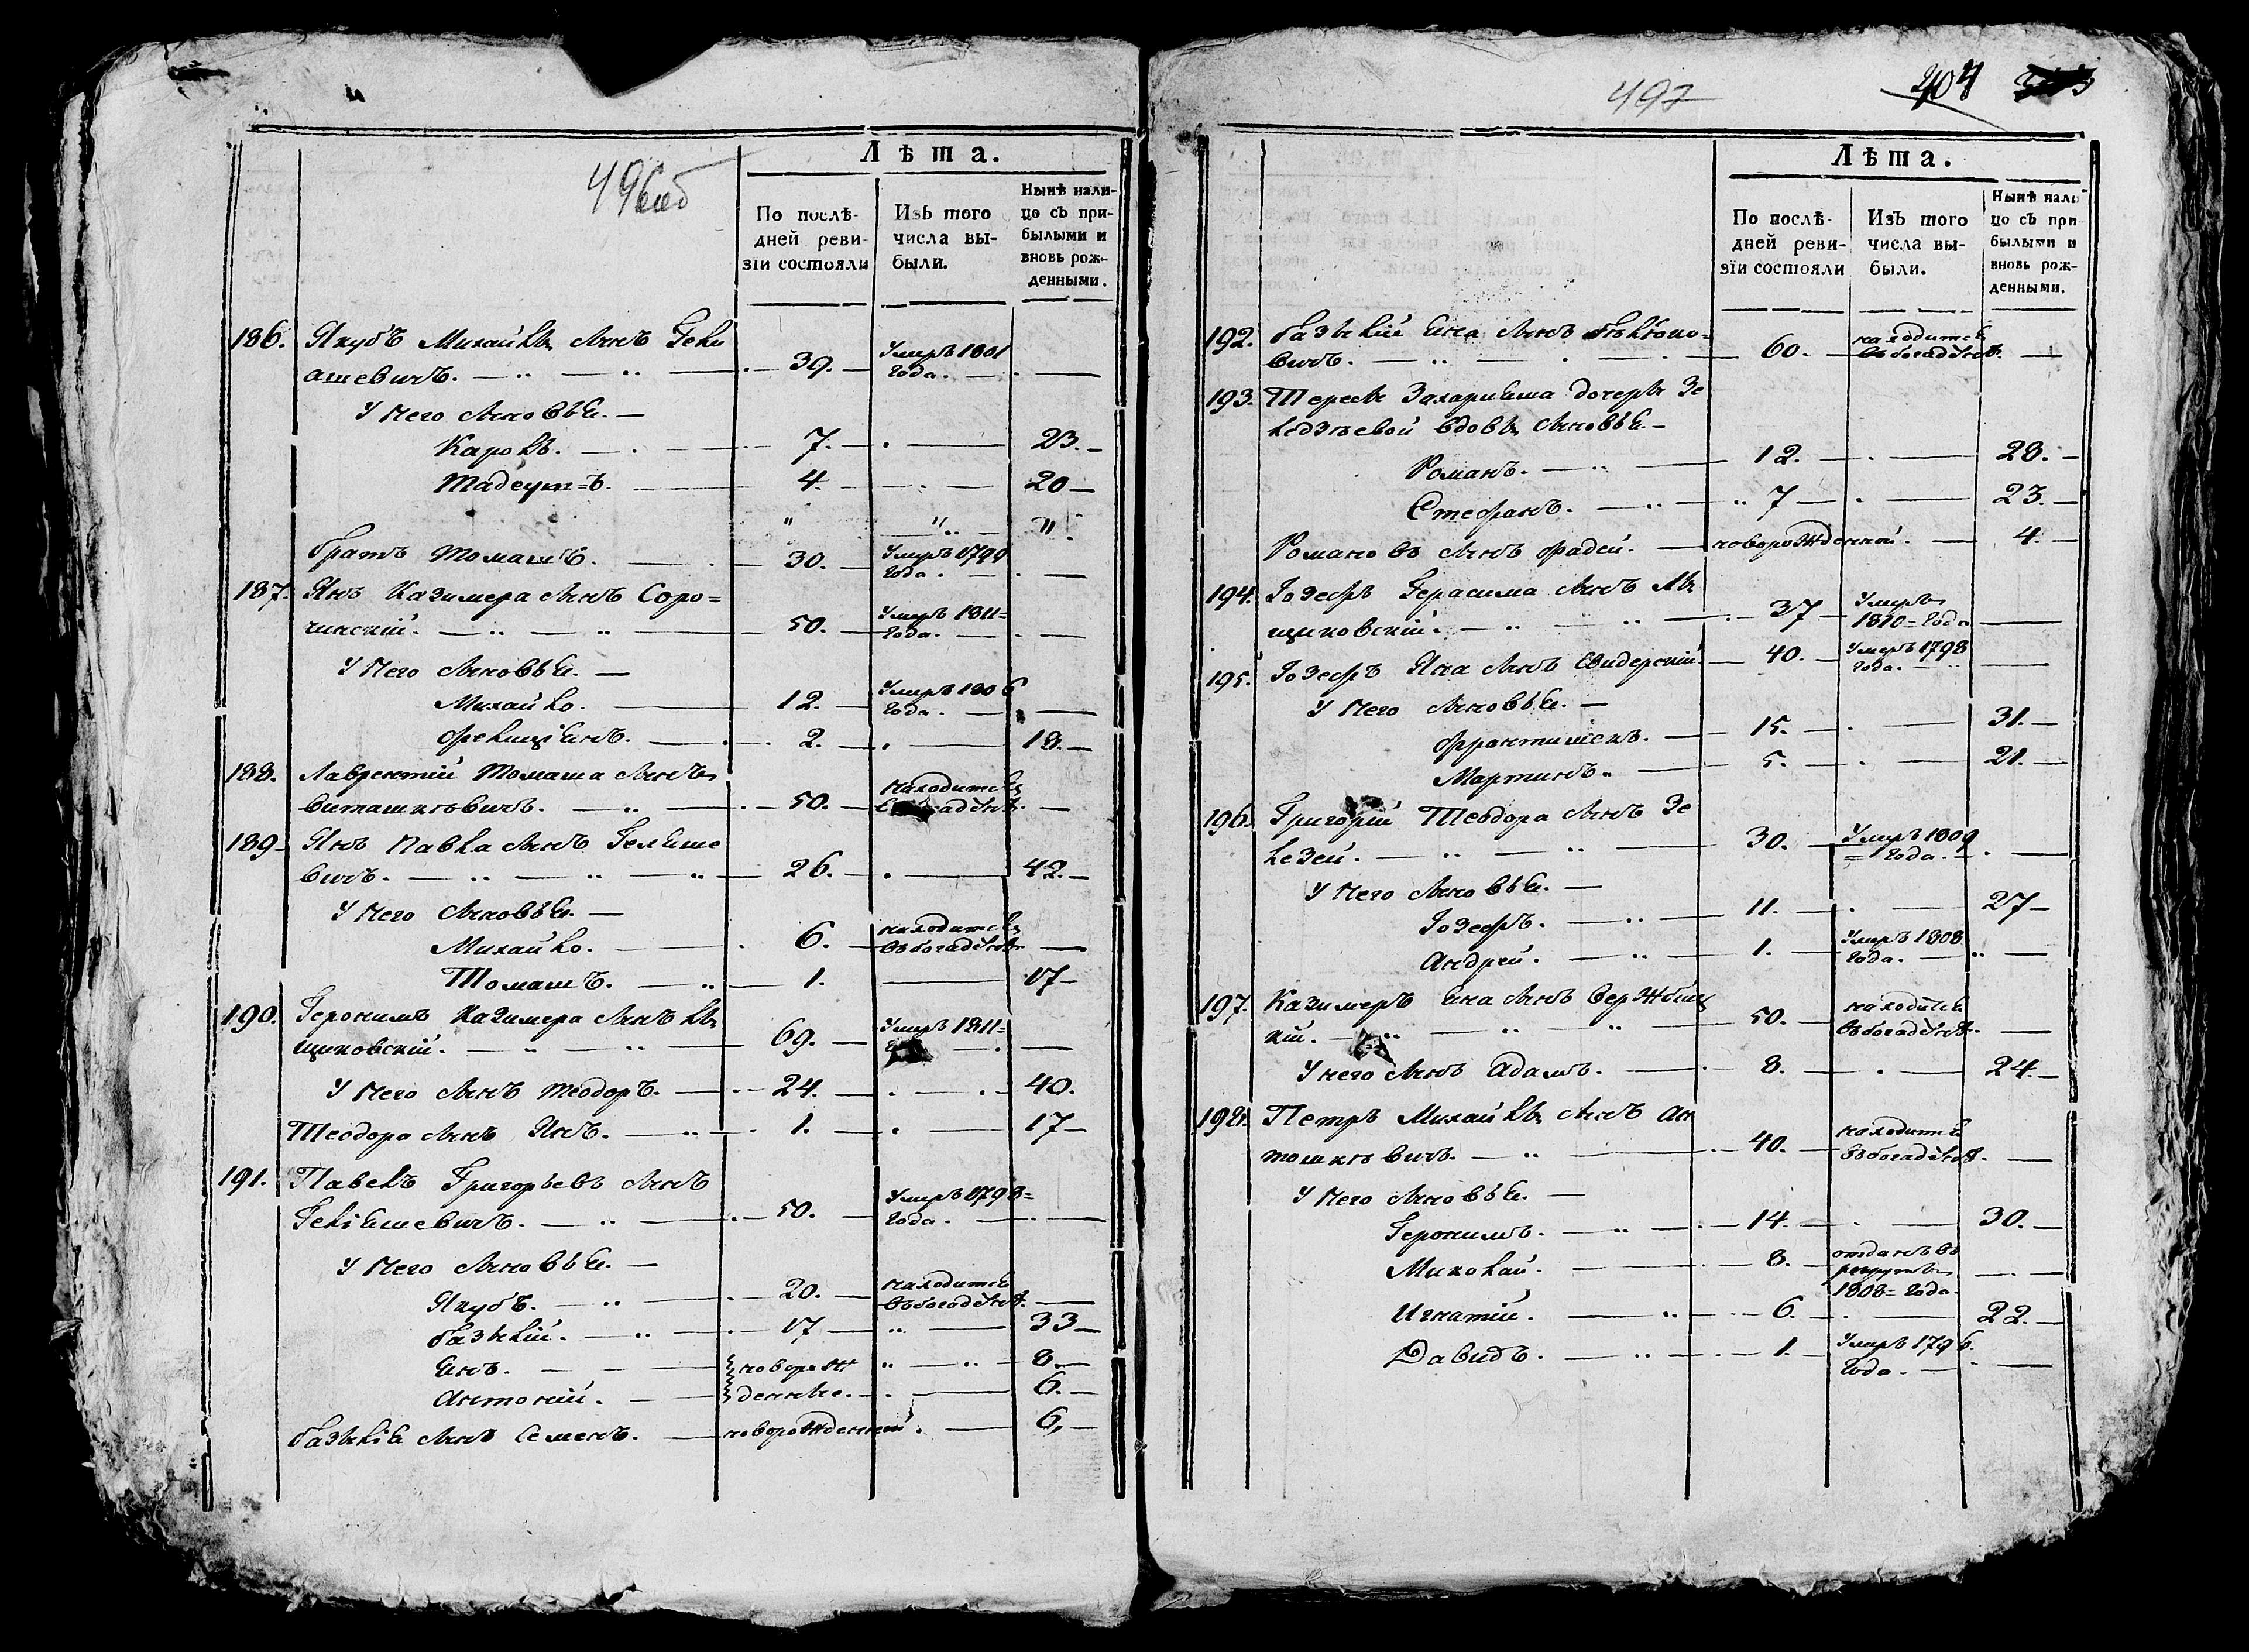 496об
Лѣта.
По послѣ-
дней реви-
зіи состояли
Изъ того
числа вы-
были.
Нынѣ нали-
цо съ при-
былыми и
вновь рож-
денными.
186. Якубъ Михайла сынъ Гели
ашевичъ. 39. Умеръ 1801 года.
У него сыновья.
Кароль. 7. 23.
Тадеушъ. 4. 20
" " "
братъ Томашъ. 30. Умеръ 1799 года.
187. Янъ Казимера сынъ Соро=
чинскій. 50. Умеръ 1811= года.
У него сыновья.
Михайло. 12. Умеръ 1806 года.
Фелиціянъ. 2. 18.
188. Лаврентій Томаша сынъ
Виташкевичъ. 50. находится
189. Янъ Павла сынъ Геляше
вичъ. 26. 42.
У него сыновья.
Михайло. 6. находится въ богадѣльнѣ
Томашъ. 1. 17
190. Геронимъ Казимера сынъ
щиковскій. 69. Умеръ 1811=
У него сынъ Теодоръ. 24. 40.
Теодора сынъ Янъ. 1. 17
191. Павелъ Григорьевъ сынъ
Геліяшевичъ. 50. Умеръ 1798= года.
У него сыновья.
Якубъ. 20. находится въ богадѣльнѣ.
базылій. 17 33
Янъ. новорож 8.
Антоній. денные. 6.
базылія сынъ Семенъ. новорожденный. 6.
497
404
Лѣта.
По послѣ-
дней реви-
зіи состояли
Изъ того
числа вы-
были.
Нынѣ нали-
цо съ при-
былыми и
вновь рож-
денными.
192. базылій Яна сынъ
вичъ. 60. находится въ богадѣльнѣ.
193. Тересы Захаріяша дочеры Зе
вдовы сыновья.
Романъ. 12. 28.
Стефанъ. 7 23.
Романовъ сынъ Фадей. новорожденной. 4.
194. Іозефъ Герасима сынъ
щиковскій. 37 Умеръ 1810= года
195. Іозефъ Яна сынъ Свидерскій. 40. Умеръ 1798 года.
У него сыновья.
Франтишекъ. 15. 31.
Мартинъ. 5. 21.
196. Григорій Теодора сынъ Зе
лезей. 30. Умеръ 1809 = года.
У него сыновья.
Іозефъ. 11. 27
Андрей. 1. Умеръ 1808 года.
197. Казимеръ Яна сынъ Вержбиц
кій. 50. находится въ богадѣльнѣ.
У него сынъ Адамъ. 8. 24.
198. Петръ Михайла сынъ Ан
тошкевичъ. 40. находится въ богадѣльнѣ.
У него сыновья.
Геронимъ. 14. 30.
Миколай. 8. отданъ въ рекруты 1808= года.
Игнатій. 6. 22.
Давидъ. 1. Умеръ 1796. года.